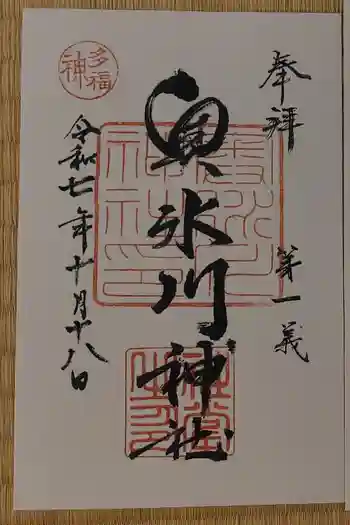 奉拝
第一義
奥氷川神社
令和七年十月十八日
多福
神